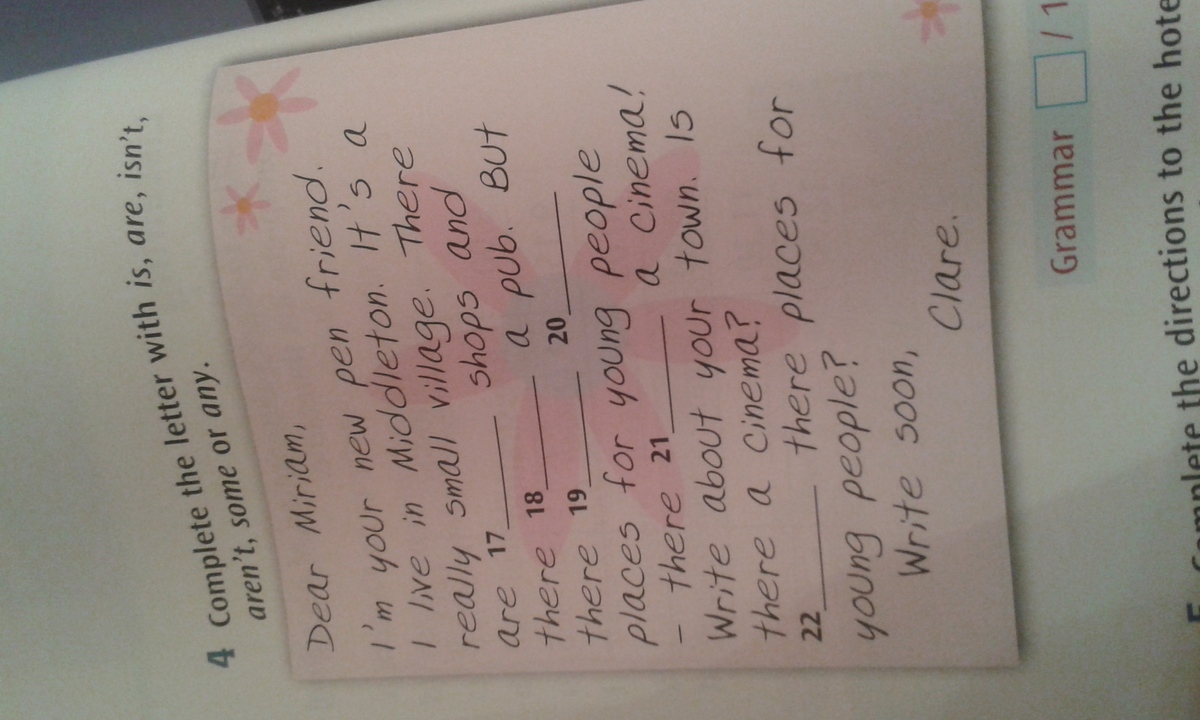 4 Complete the letter with is, are, isn't,
aren't, some or any.
Dear Miriam,
I'm your new pen friend.
I live in Middleton. It's a
really small village. There
are 17 ______ shops and
there 18 ______ a pub. But
there 19 ______ 20 ______
places for young people
– there 21 ______ a cinema!
Write about your town. Is
there a cinema?
22 ______ there places for
young people?
Write soon,
Clare.
Grammar / 1
the directions to the hote